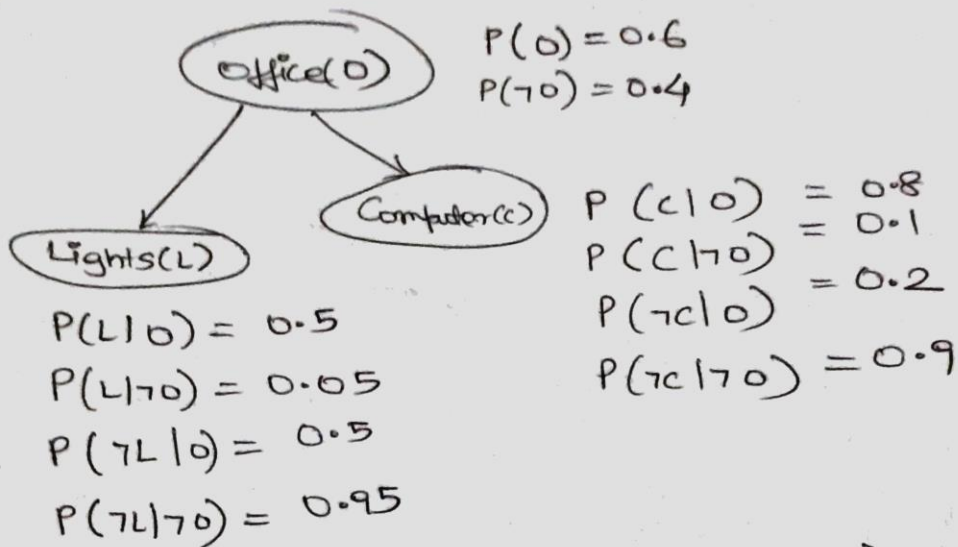 Office(O)
P(O) = 0.6
P(¬O) = 0.4
Computer(C)
Lights(L)
P(C|O) = 0.8
P(C|¬O) = 0.1
P(¬C|O) = 0.2
P(¬C|¬O) = 0.9
P(L|O) = 0.5
P(L|¬O) = 0.05
P(¬L|O) = 0.5
P(¬L|¬O) = 0.95